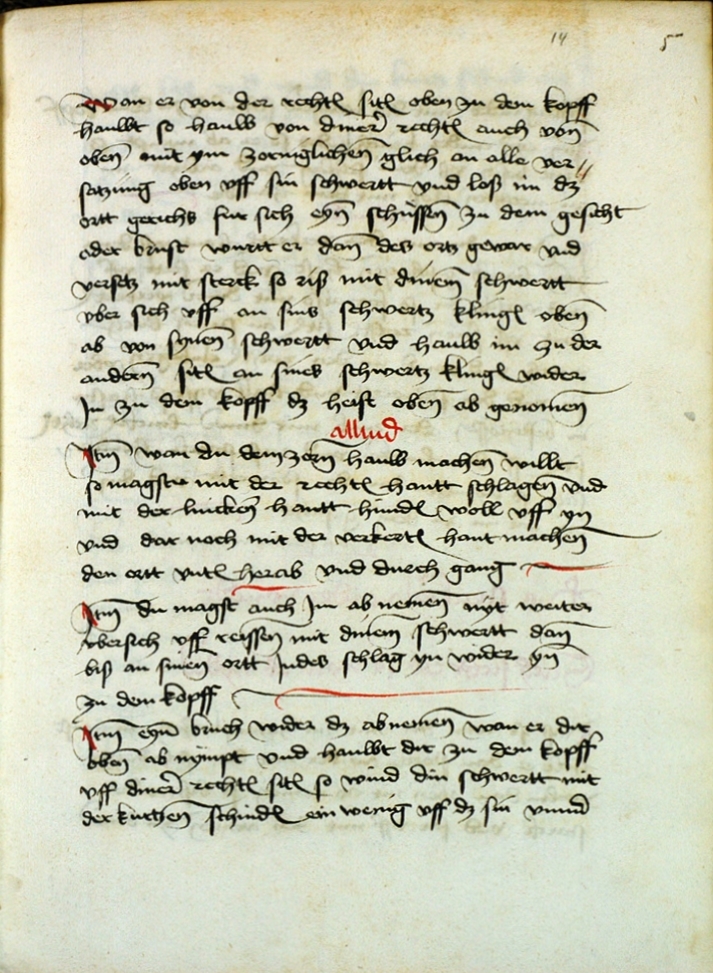 14 5
Wan er von der rechtē sitē oben zu dem kopff
hauwt so hauw von dinē rechtē auch von
oben mit ym zorniglichen glich an alle ver //
satzung oben vff sin schwertt vnd loß im dz
ortt gerichs fur sich eyn schüssen zu dem gesicht
oder brust wurtt er dan des ortz gewar vnd
versetz mit sterck so riß mit dinem schwertt
vber sich vff an sins schwertz klingē oben
ab von synen schwertt vnd hauw im zu der
andern sitē an sines schwertz klingē wider
In zu dem kopff dz heist oben ab genomen
allind
Itm wan du dem zorn hauw machen willt
so magstu mit der rechtē hantt schlagen vnd
mit der lincken hantt hindē woll vff yn
vnd dar noch mit der verkertē hant machen
den ortt vntē herab vnd durch gang
Itm du magst auch Im ab nemen nyt weiter
vbersich vff reissen mit dinem schwertt dan
biß an sinen ortt Indes schlag yn wider yn
zu dem kopff
Itm eyn bruch wider dz abnemen wan er dir
oben ab nympt vnd hauwt dir zu dem kopff
vff dinē rechtē sitē so wind din schwertt mit
der kurtzen schindē ein wenig vff dz sin vnnd